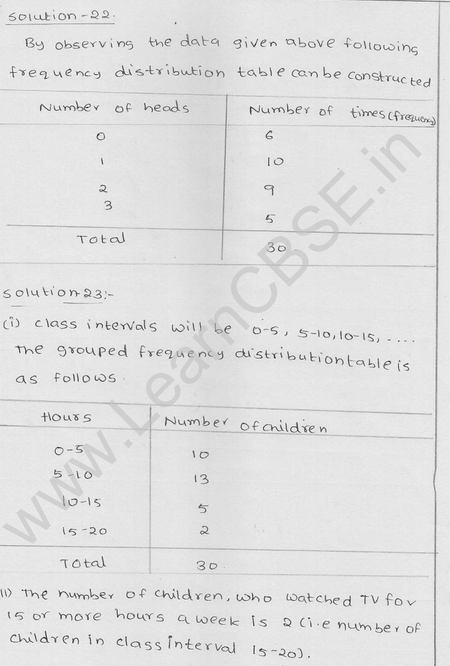 Solution-22:
By observing the data given above following
frequency distribution table can be constructed
Number of heads Number of times(frequency)
0 6
1 10
2 9
3 5
Total 30
Solution-23:-
(i) class intervals will be 0-5, 5-10,10-15, ....
The grouped frequency distribution table is
as follows.
Hours Number of children
0-5 10
5-10 13
10-15 5
15-20 2
Total 30
ii) The number of children, who watched TV for
15 or more hours a week is 2 (i.e number of
children in class interval 15-20).
www.LearnCBSE.in